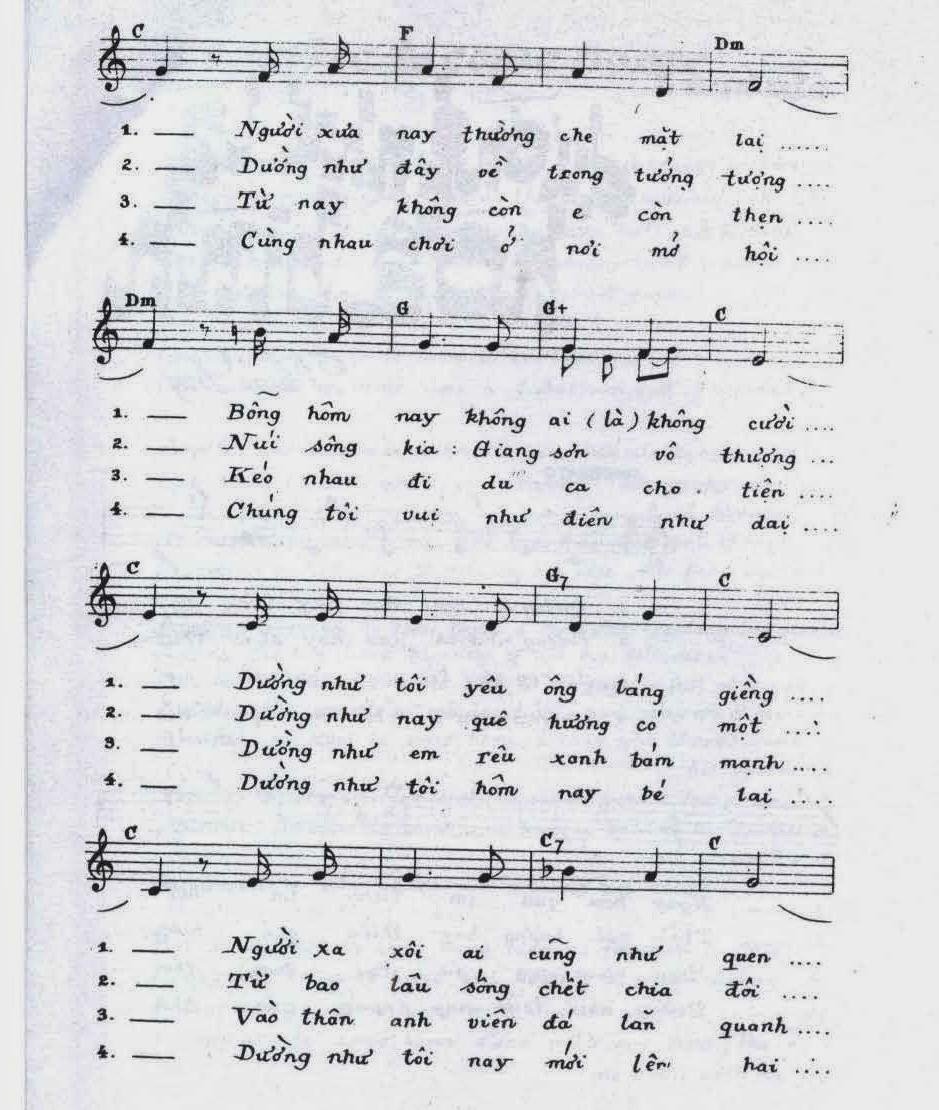 C F Dm
1. Người xưa nay thường che mặt lại .....
2. Dường như đây về trong tưởng tượng ....
3. Từ nay không còn e còn thẹn ....
4. Cùng nhau chơi ở nơi mở hội ....
Dm G G+ C
1. Bỗng hôm nay không ai (là) không cười ....
2. Núi sông kia : Giang sơn vô thường ...
3. Kéo nhau đi du ca cho tiện ....
4. Chúng tôi vui như điên như dại ....
C G7 C
1. Dường như tôi yêu ông láng giềng ....
2. Dường như nay quê hương có một ....
3. Dường như em rêu xanh bám manh ....
4. Dường như tôi hôm nay bé lại ....
C C7 C
1. Người xa xôi ai cũng như quen ....
2. Từ bao lâu sống chết chia đôi ....
3. Vào thân anh viên đá lăn quanh ....
4. Dường như tôi nay mới lên hai ....